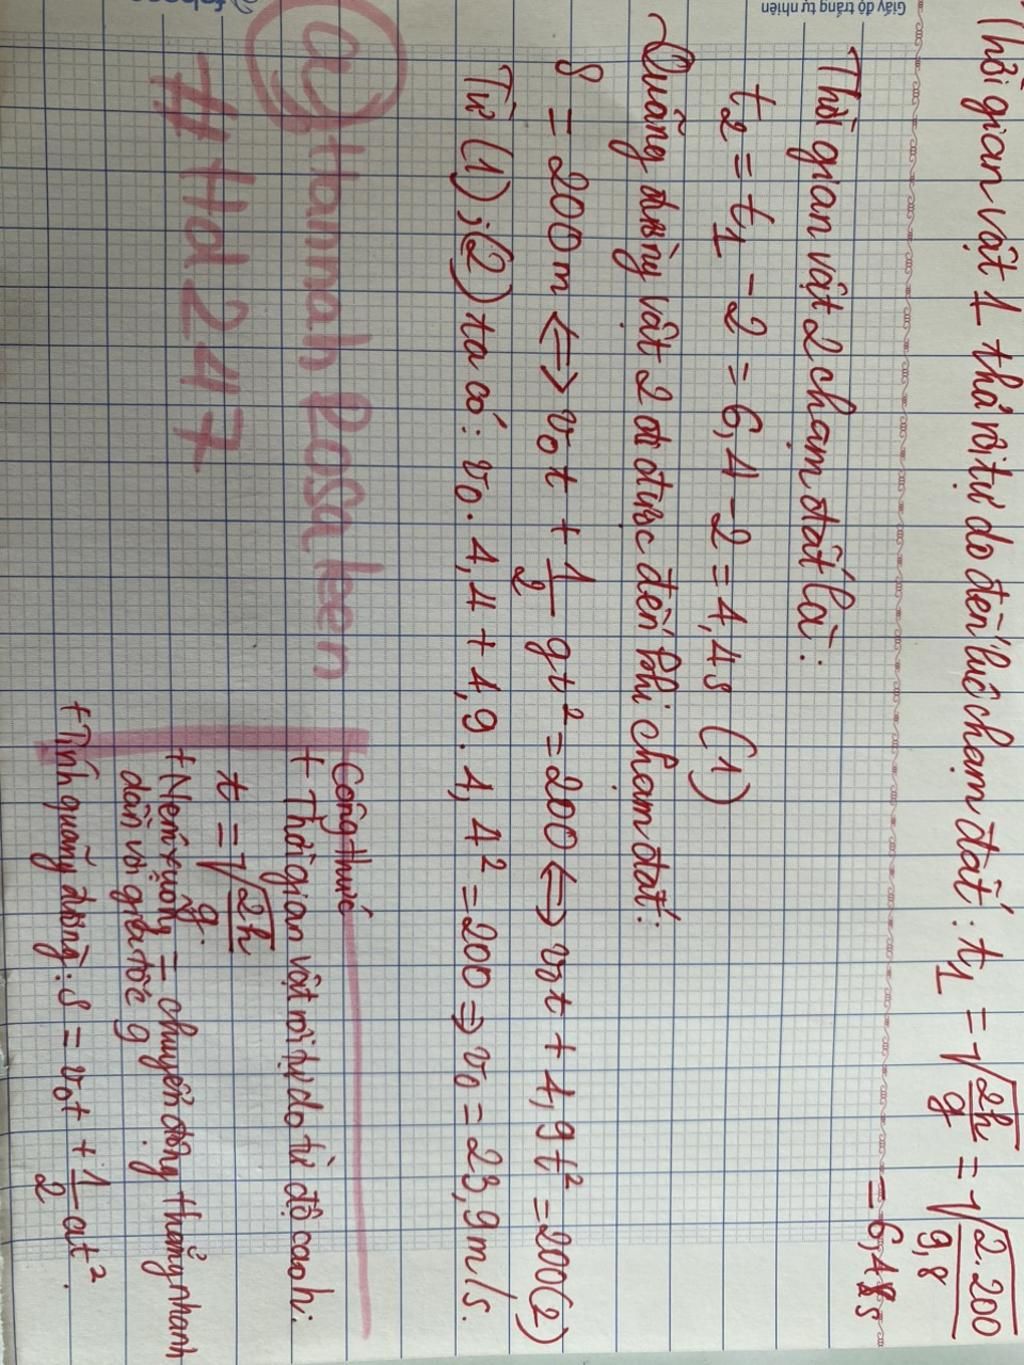 Giấy độ trắng tự nhiên
Thời gian vật 1 thả rơi tự do đến lúc chạm đất: t₁ = √(2h/g) = √(2.200/9,8)
= 6,4s
Thời gian vật 2 chạm đất là:
t₂ = t₁ - 2 = 6,4 - 2 = 4,4s (1)
Quãng đường vật 2 đi được đến khi chạm đất:
S = 200m ⇔ v₀t + 1/2 gt² = 200 ⇔ v₀t + 4,9t² = 200 (2)
Từ (1); (2) ta có: v₀. 4,4 + 4,9. 4,4² = 200 ⇒ v₀ = 23,9m/s.
@ Hannah Rosa keen
# Hd 247
Công thức
+ Thời gian vật rơi tự do từ độ cao h:
t = √(2h/g).
+ Ném xuống = chuyển động thẳng nhanh
dần với gia tốc g
+ Tính quãng đường: S = v₀t + 1/2 at².